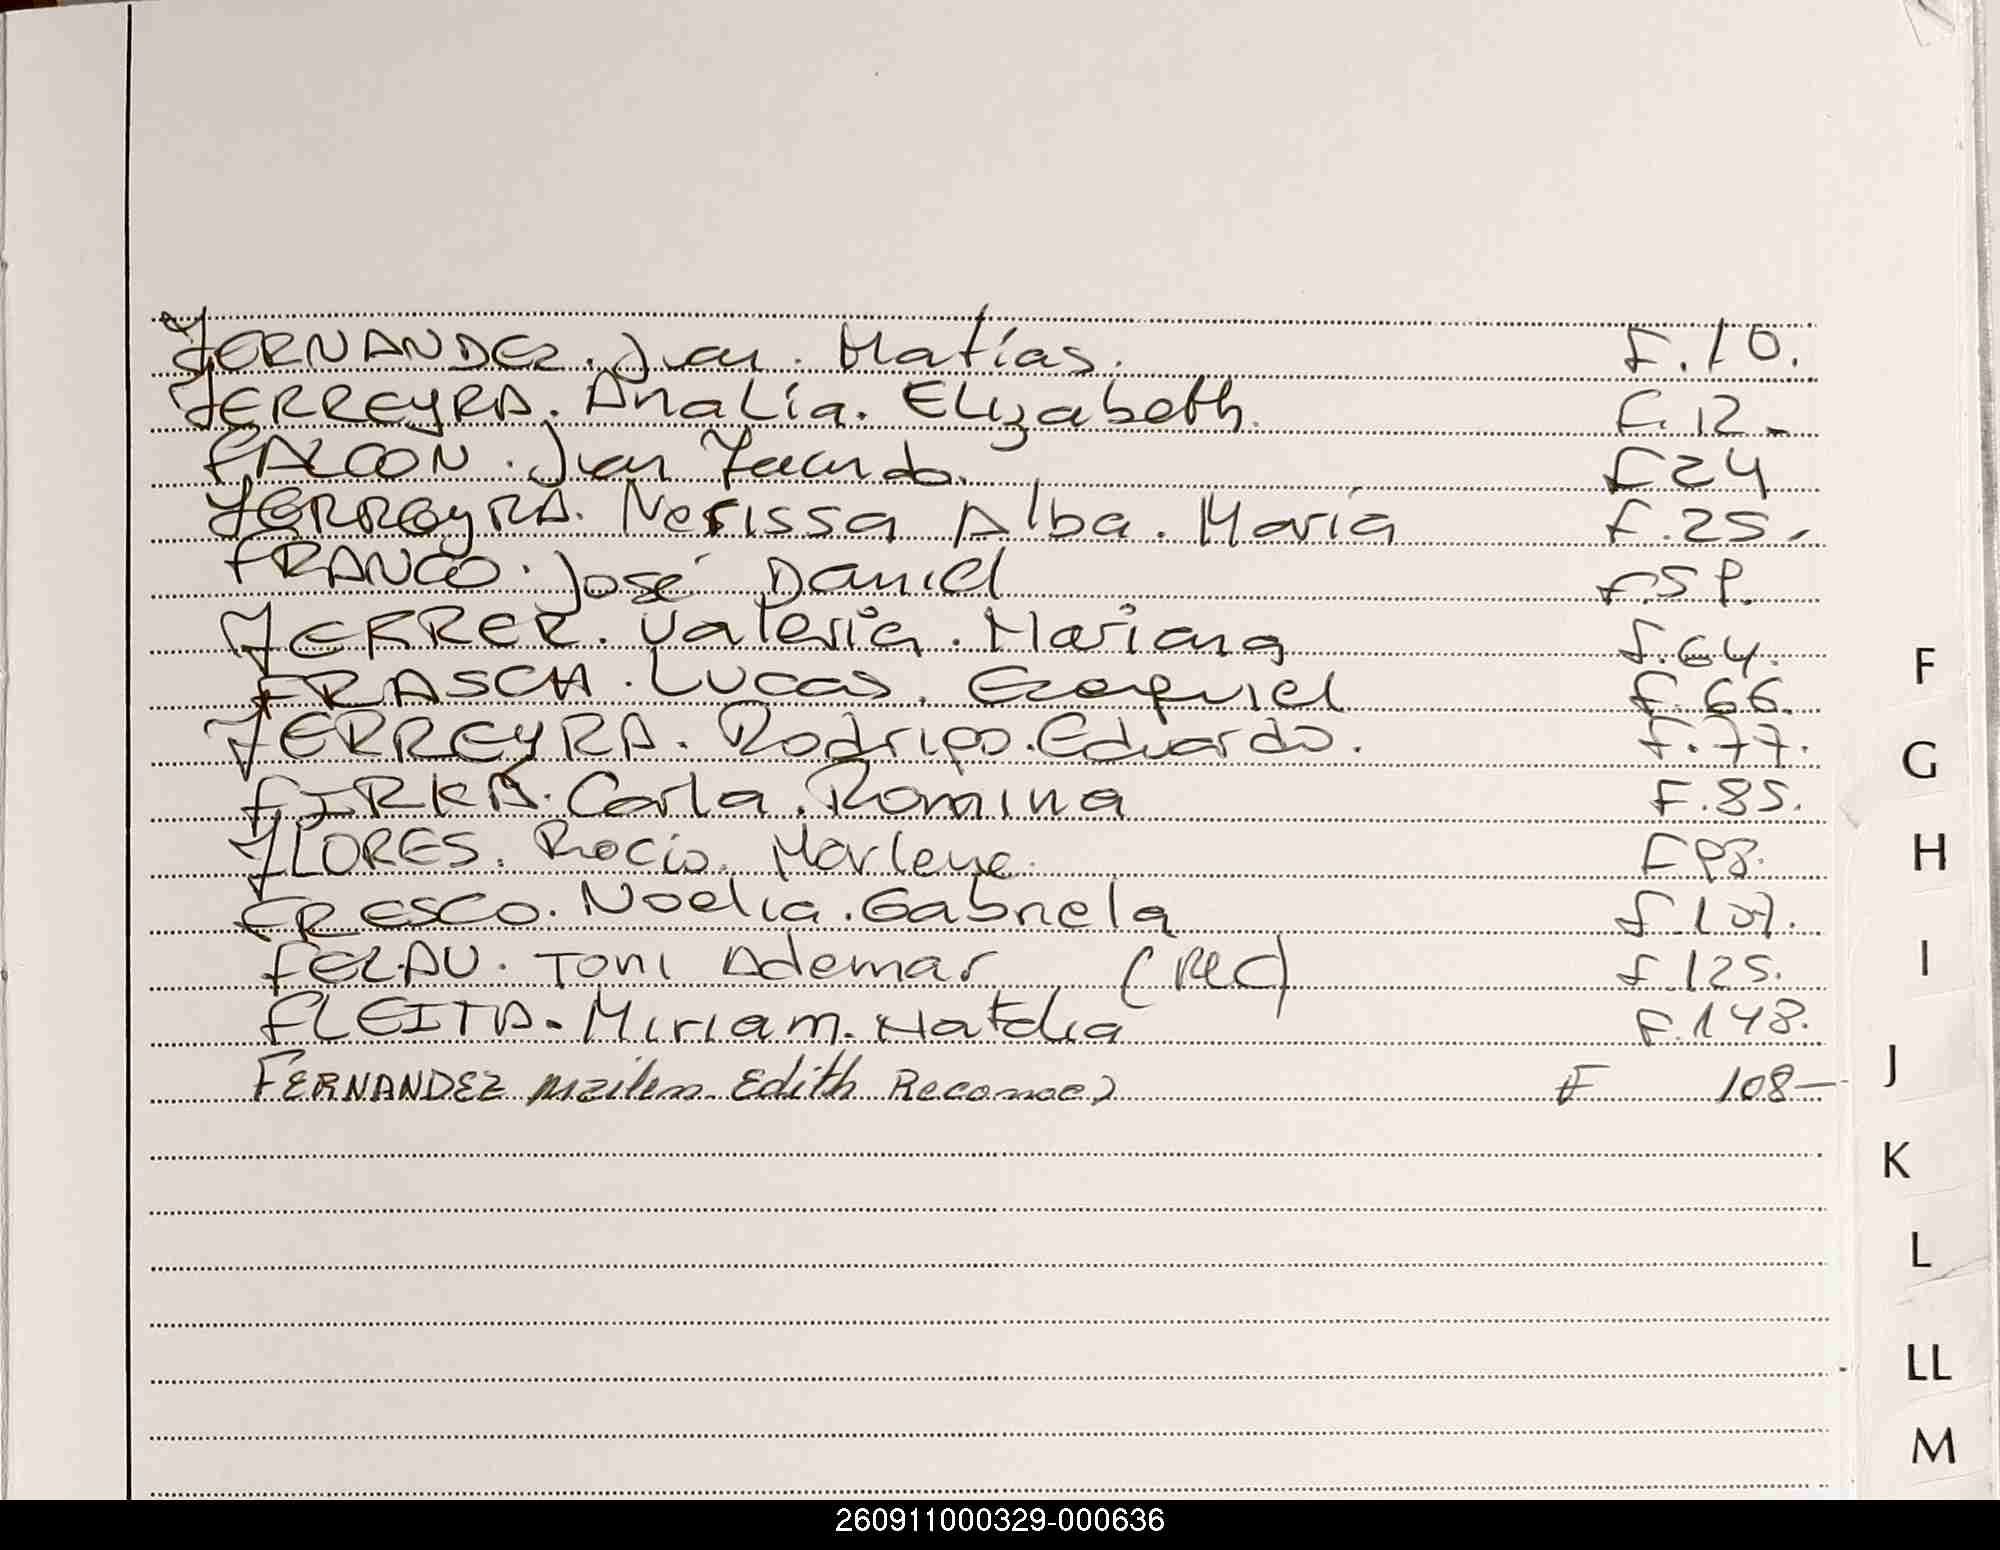 FERNANDEZ. Juan. Matías. F.10.
FERREYRA. Analía. Elizabeth. F.12.
FALCON. Juan Facundo. F 24
FERREYRA. Nerissa Alba. María F.25.
FRANCO. José Daniel F.59.
FERRER. Valeria. Mariana F.64.
FRASCH. Lucas. Ezequiel F.66.
FERREYRA. Rodrigo. Eduardo. F.77.
FIRKA. Carla. Romina F.85.
FLORES. Rocio. Marlene. F 98.
FRESCO. Noelia. Gabriela F.107.
Toni Ademar (Rec) F.125.
FLEITA. Miriam. Natalia F.148.
FERNANDEZ Edith F 108-
F
G
H
I
J
K
L
LL
M
260911000329-000636